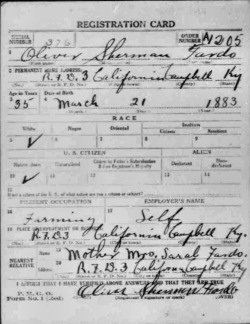 REGISTRATION CARD
SERIAL NUMBER 376 ORDER NUMBER A1205
1 Oliver Sherman Fardo
2 PERMANENT HOME ADDRESS:
R.F.D.3 California Campbell Ky
Age in Years Date of Birth
35 March 21 1883
RACE
White Negro Oriental Indian
Citizen Noncitizen
U. S. CITIZEN ALIEN
Native Born Naturalized Citizen by Father's Naturalization Before Registrant's Majority Declarant Non-declarant
If not a citizen of the U. S., of what nation are you a citizen or subject?
PRESENT OCCUPATION EMPLOYER'S NAME
Farming Self
PLACE OF EMPLOYMENT OR BUSINESS:
R.F.D.3 California Campbell Ky.
NEAREST RELATIVE
Mother Mrs. Sarah Fardo.
R.F.D.3 California Campbell Ky
I AFFIRM THAT I HAVE VERIFIED ABOVE ANSWERS AND THAT THEY ARE TRUE
P. M. G. O.
Form No. 1 (Red)
Oliver Sherman Fardo